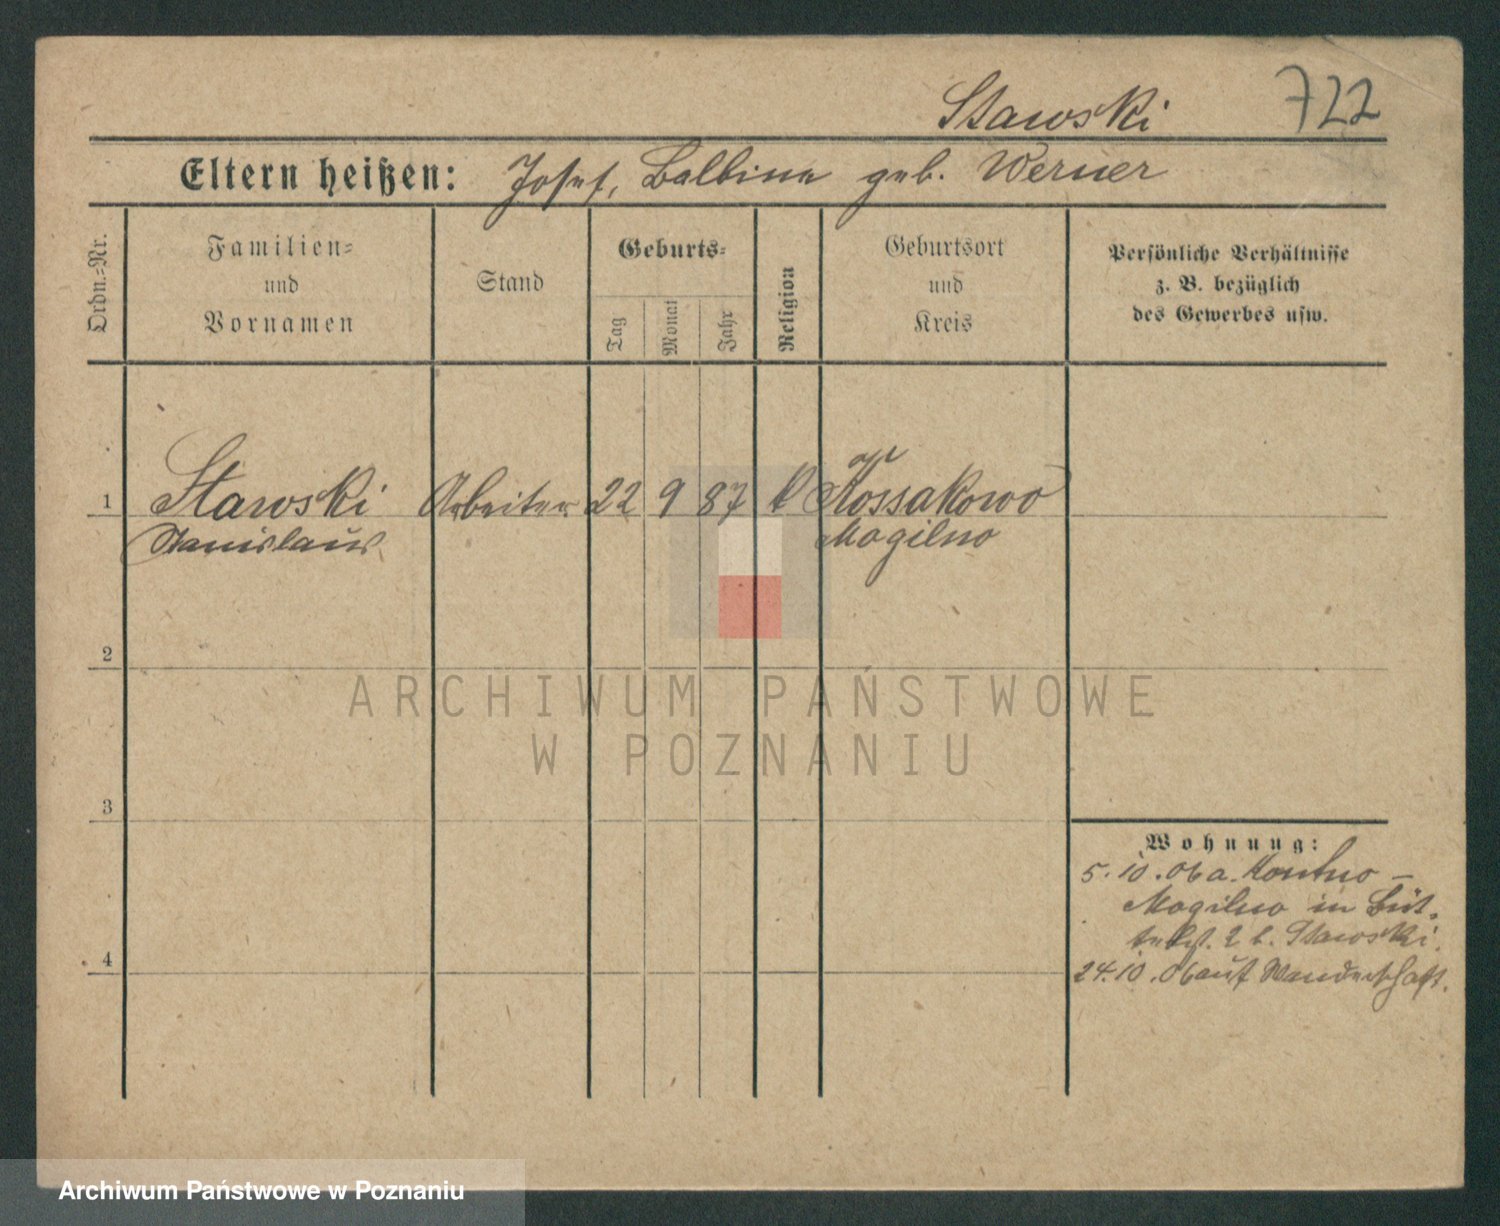 Stawski 722
Eltern heißen: Josef, Balbina geb. Werner
Ordn.-Nr.
Familien-
und
Vornamen
Stand
Geburts-
Tag
Monat
Jahr
Religion
Geburtsort
und
Kreis
Persönliche Verhältnisse
z. B. bezüglich
des Gewerbes usw.
1 Stawski Arbeiter 22 9 87 k Kossakowo
Stanislaus Mogilno
2
ARCHIWUM PAŃSTWOWE
W POZNANIU
3
Wohnung:
5.10.06 a.
Mogilno in
2 b. Stawski.
4
24.10.06 auf Wanderschaft.
Archiwum Państwowe w Poznaniu